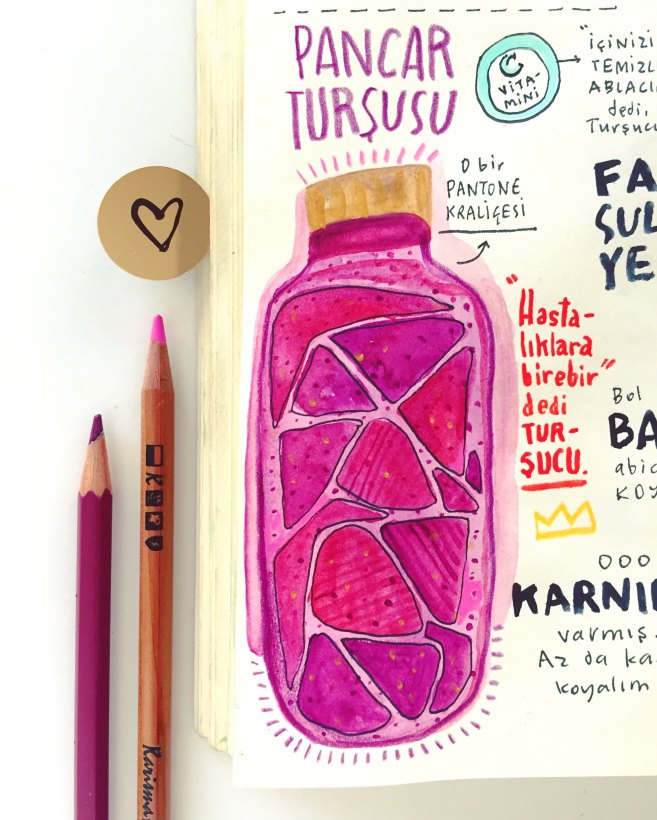 PANCAR
TURŞUSU
C
VİTA-
MİNİ
"İÇİNİZİ
TEMİZL
ABLACI
dedi,
Turşucu
O bir
PANTONE
KRALİÇESİ
FA
ŞUL
YE
"Hasta-
lıklara
birebir"
dedi
TUR-
ŞUCU.
Bol
BA
abic
KOY
KARNI
varmış.
Az da ka
koyalım
Karisma